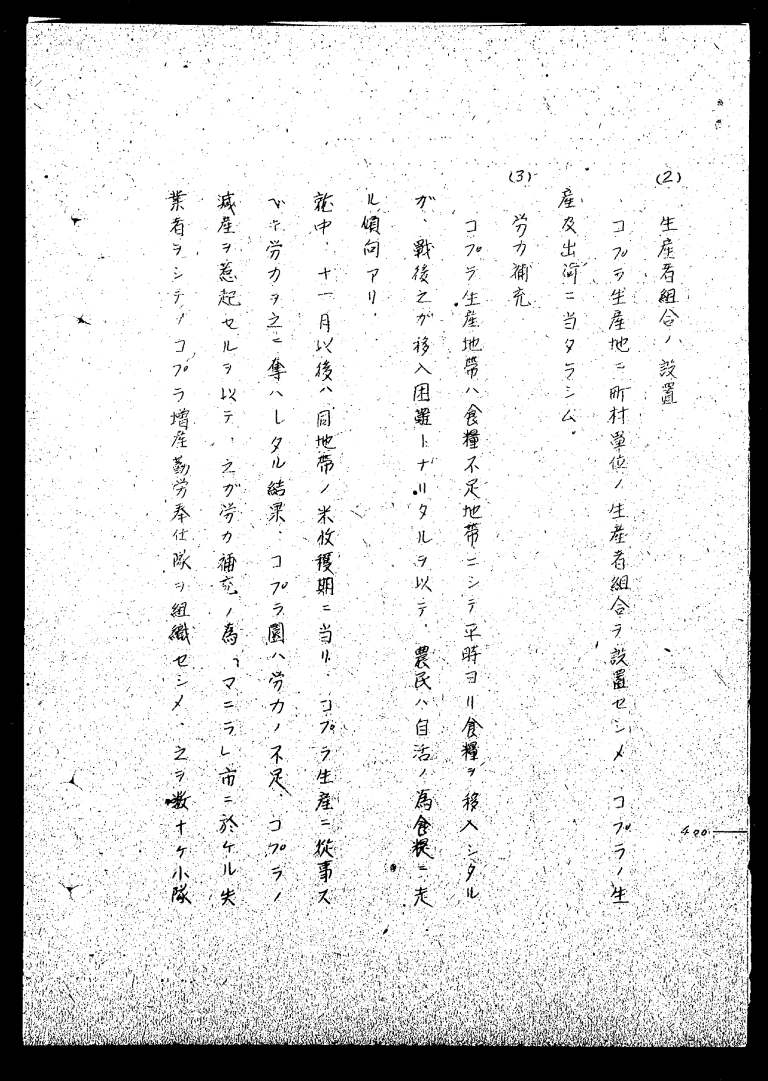 (2) 生産者組合ノ設置
コプラ生産地ニ町村単位ノ生産者組合ヲ設置セシメ、コプラノ生
産及出荷ニ当タラシム。
(3) 労力補充
コプラ生産地帯ハ食糧不足地帯ニシテ平時ヨリ食糧ヲ移入シタル
ガ、戦後之ガ移入困難トナリタルヲ以テ、農民ハ自活ノ為食糧ニ走
ル傾向アリ、
就中、十一月以後ハ同地帯ノ米收穫期ニ当リ、コプラ生産ニ従事ス
ベキ労力ヲ之ニ奪ハレタル結果、コプラ園ハ労力ノ不足、コプラノ
減産ヲ惹起セルヲ以テ、之ガ労力補充ノ為、マニラ市ニ於ケル失
業者ヲシテ、コプラ増産勤労奉仕隊ヲ組織セシメ、之ヲ数十ケ小隊
400